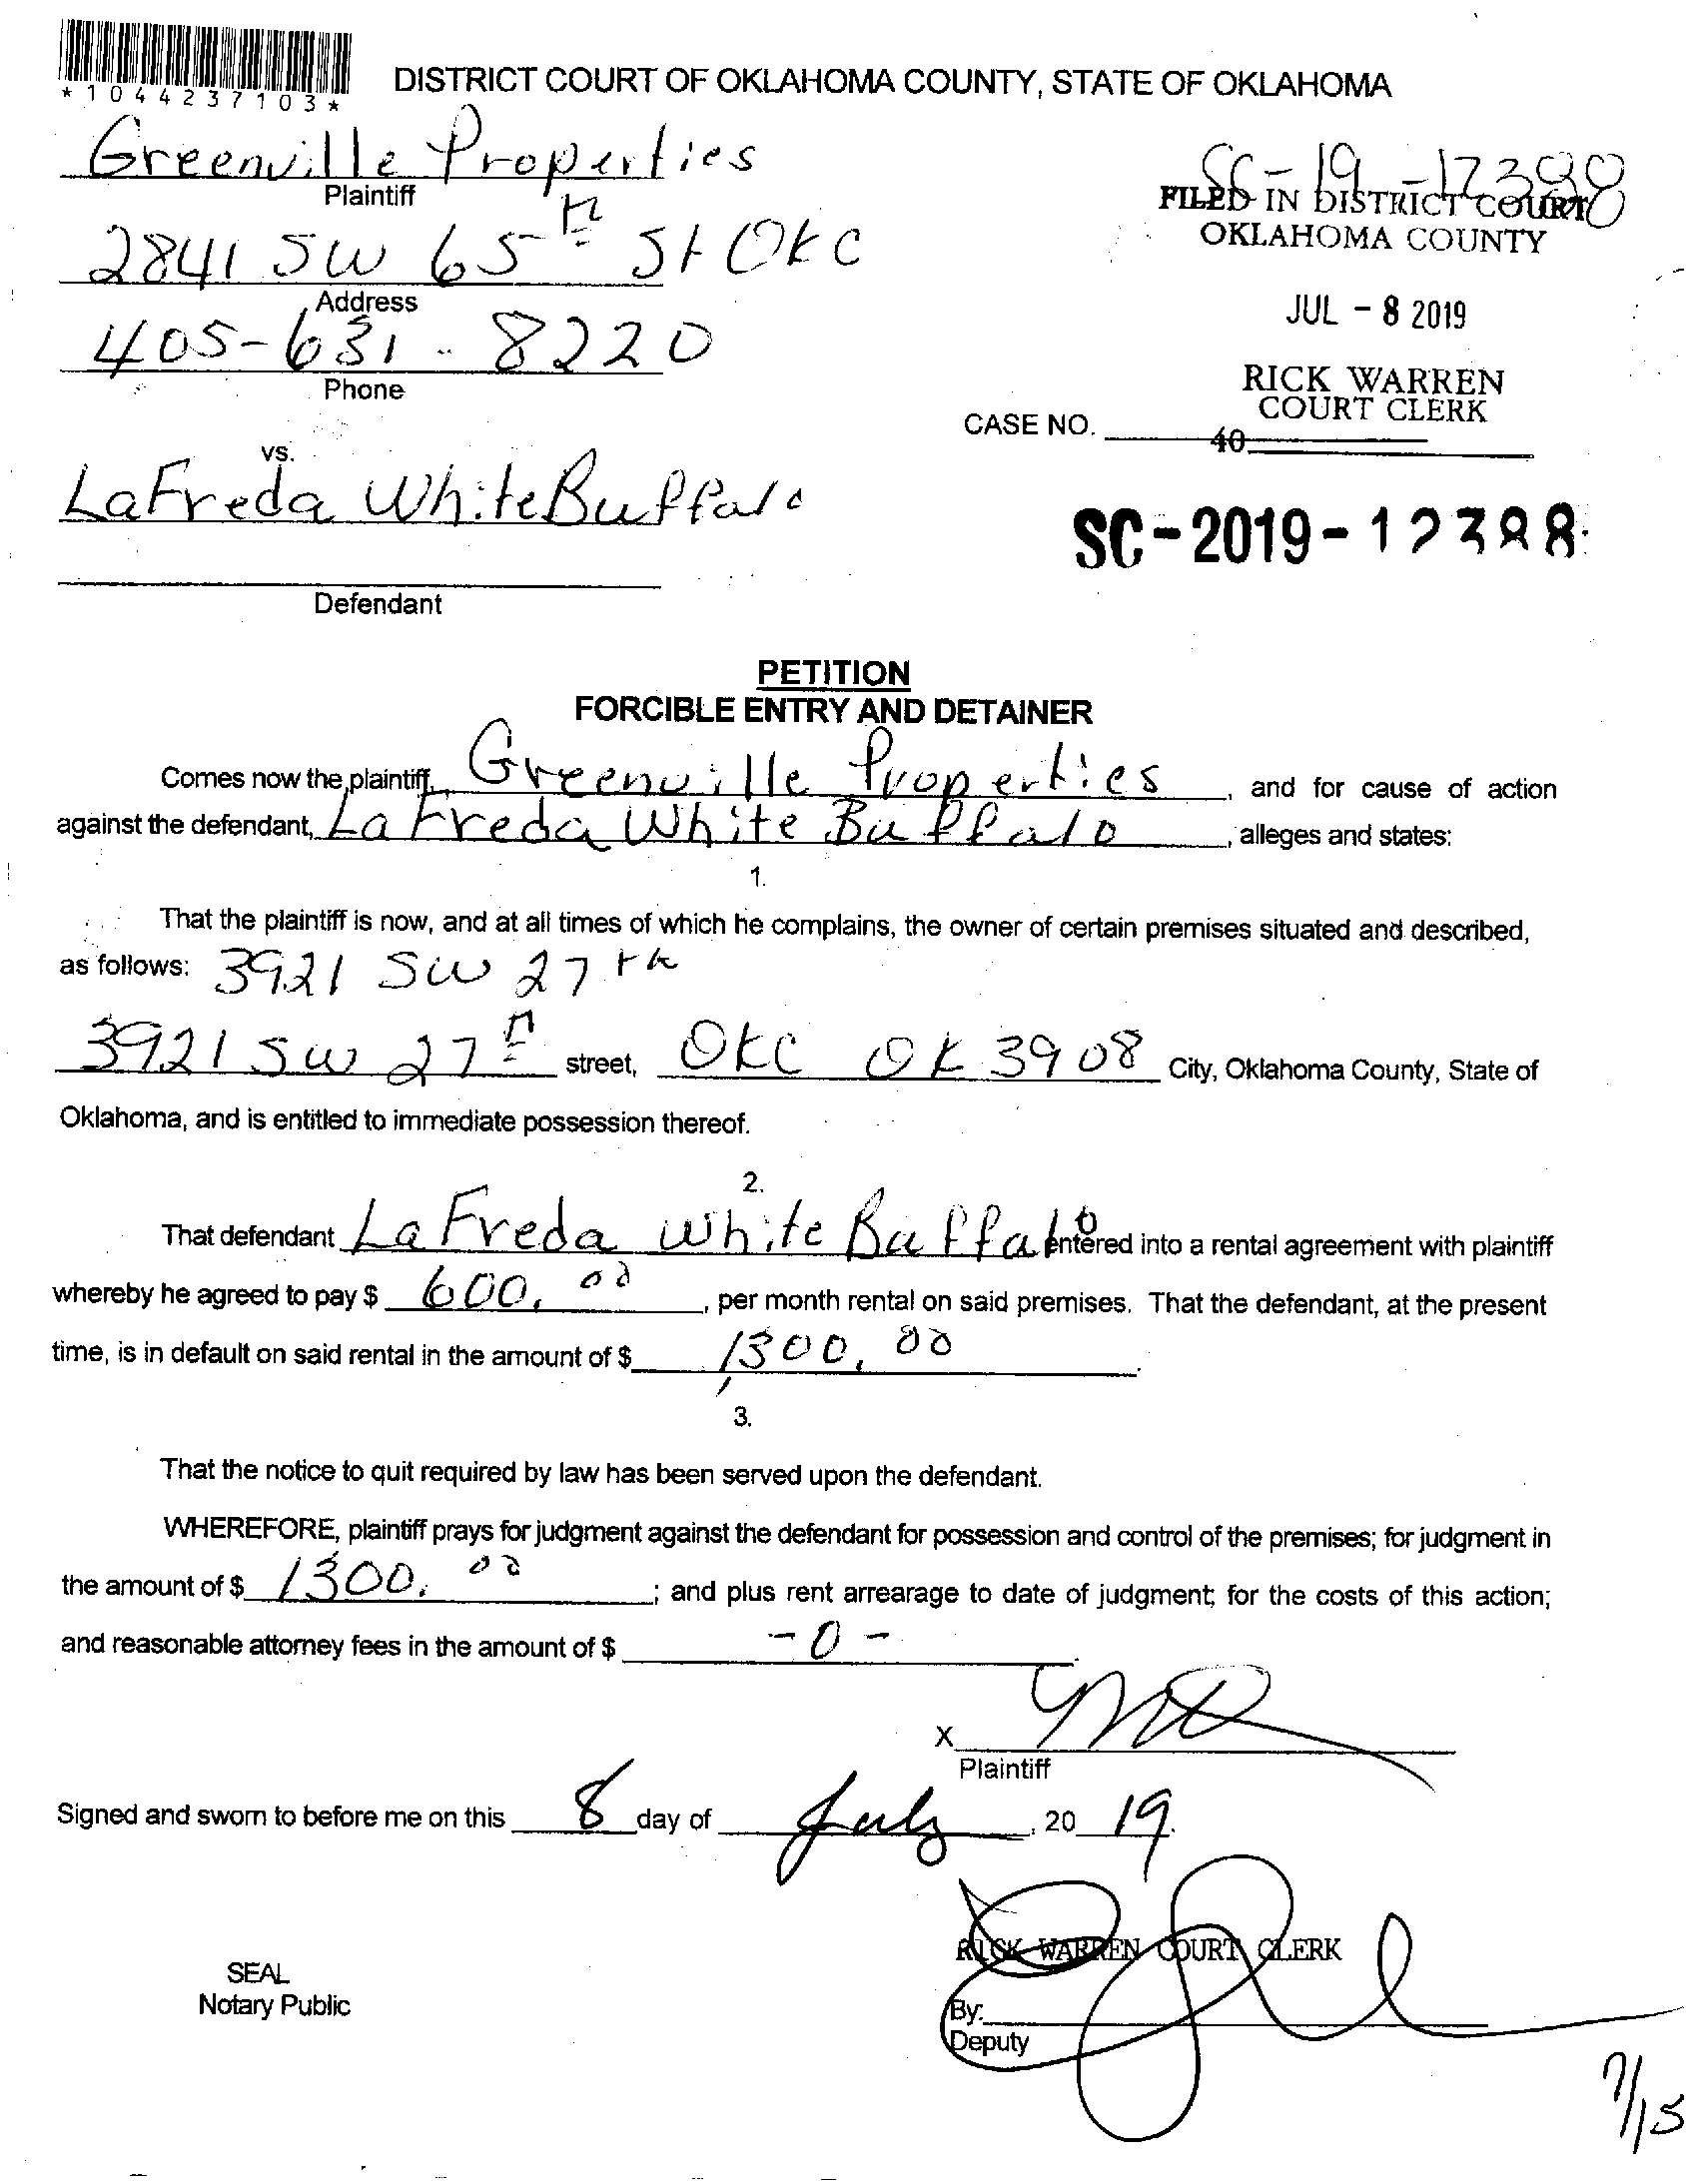 *1044237103*
DISTRICT COURT OF OKLAHOMA COUNTY, STATE OF OKLAHOMA
Greenville Properties
Plaintiff
SC-19-12388
FILED IN DISTRICT COURT
OKLAHOMA COUNTY
2841 SW 65th St OKC
Address
JUL - 8 2019
405-631-8220
Phone
RICK WARREN
COURT CLERK
CASE NO.
40
vs.
LaFreda WhiteBuffalo
SC-2019-12388
Defendant
PETITION
FORCIBLE ENTRY AND DETAINER
Comes now the plaintiff, Greenville Properties, and for cause of action
against the defendant, La Freda White Buffalo, alleges and states:
1.
That the plaintiff is now, and at all times of which he complains, the owner of certain premises situated and described,
as follows: 3921 SW 27th
3921 SW 27th street, OKC OK 3908 City, Oklahoma County, State of
Oklahoma, and is entitled to immediate possession thereof.
2.
That defendant La Freda White Buffalo entered into a rental agreement with plaintiff
whereby he agreed to pay $ 600.00, per month rental on said premises. That the defendant, at the present
time, is in default on said rental in the amount of $ 1300.00.
3.
That the notice to quit required by law has been served upon the defendant.
WHEREFORE, plaintiff prays for judgment against the defendant for possession and control of the premises; for judgment in
the amount of $ 1300.00; and plus rent arrearage to date of judgment; for the costs of this action;
and reasonable attorney fees in the amount of $ -0-.
X
Plaintiff
Signed and sworn to before me on this 8 day of July, 20 19.
RICK WARREN COURT CLERK
SEAL
Notary Public
By:
Deputy
7/15